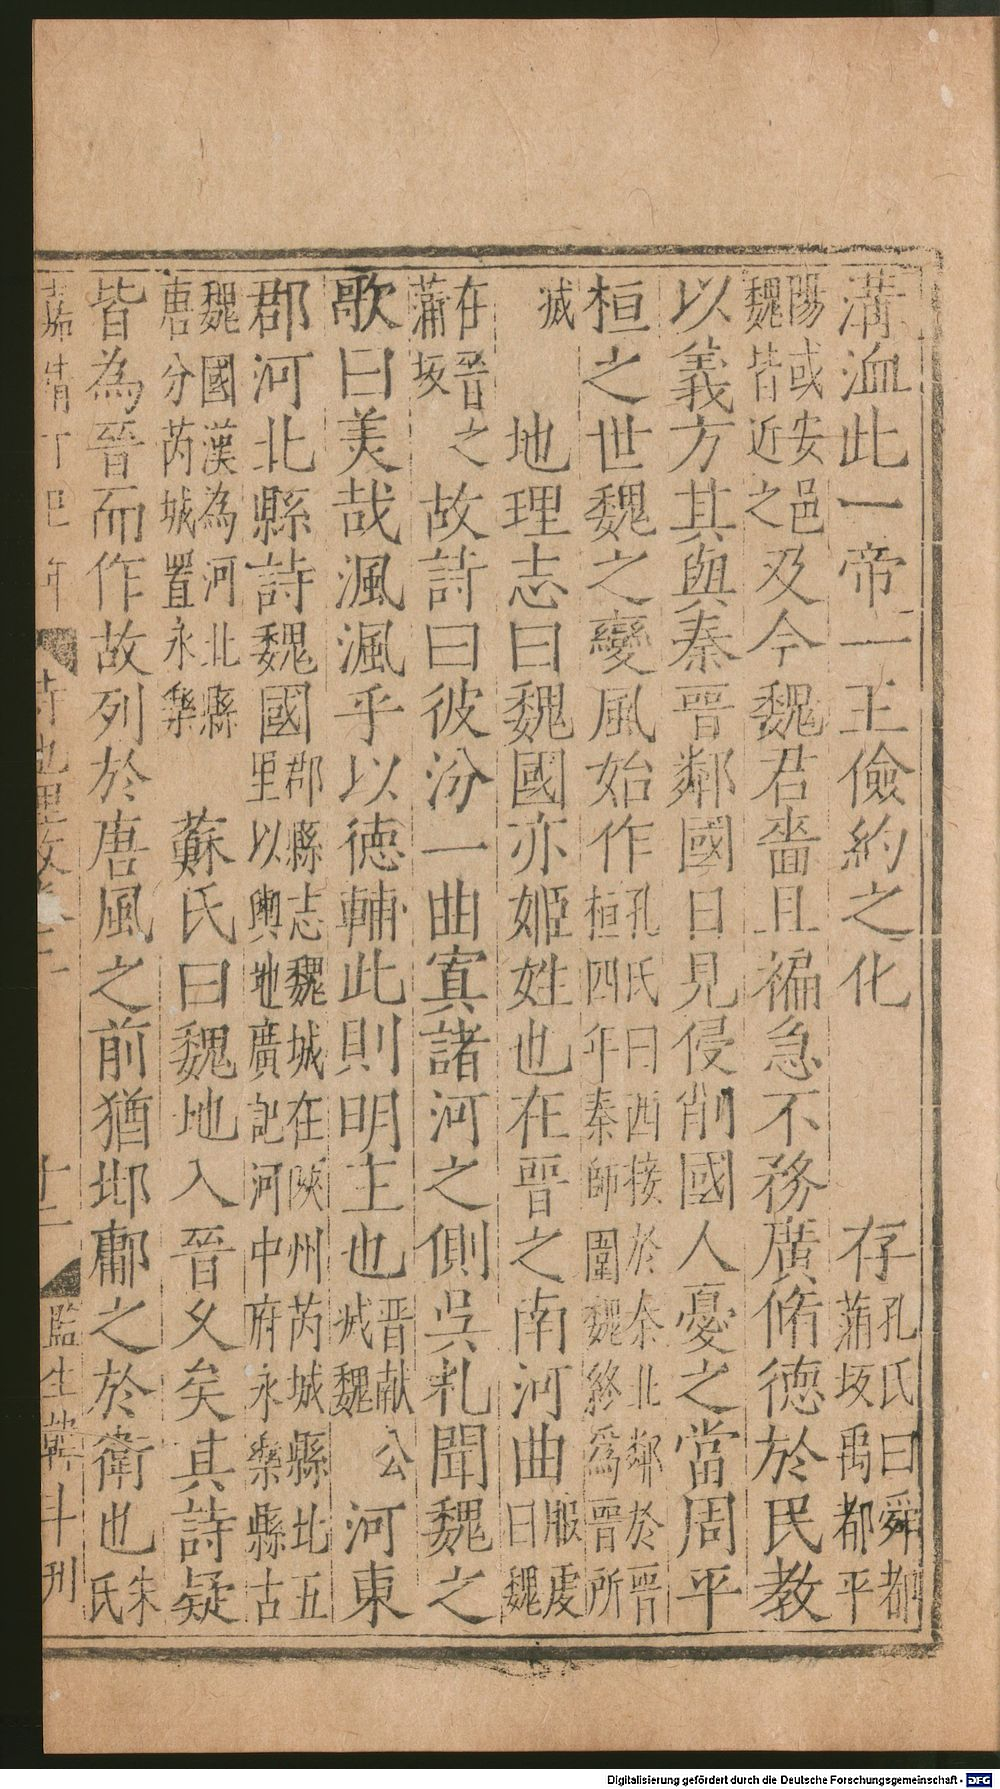 溝洫此一帝一王儉約之化　存孔氏曰舜都蒲坂禹都平
陽或安邑魏皆近之及今魏君嗇且褊急不務廣脩德於民教
以義方其與秦晉鄰國日見侵削國人憂之當周平
桓之世魏之變風始作孔氏曰西接於秦北鄰於晉桓四年秦師圍魏終為晉所
滅　地理志曰魏國亦姬姓也在晉之南河曲服虔曰魏
在晉之蒲坂故詩曰彼汾一曲寘諸河之側吳札聞魏之
歌曰美哉渢渢乎以德輔此則明主也晉献公㓕魏　河東
郡河北縣詩魏國郡縣志魏城在陝州芮城縣北五里以輿地廣記河中府永樂縣古
魏國漢為河北縣唐分芮城置永樂　蘇氏曰魏地入晉乆矣其詩疑
皆為晉而作故列於唐風之前猶邶鄘之於衛也朱氏
嘉靖丁巳年　詩地理攷卷二　十二　監生蘄斗刊
Digitalisierung gefördert durch die Deutsche Forschungsgemeinschaft - DFG